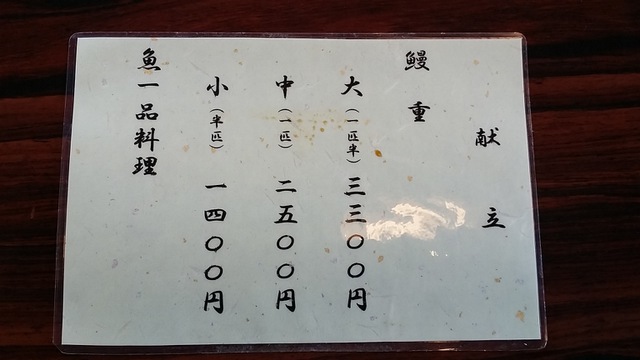 献立
鰻重
大（一匹半）三三〇〇円
中（一匹）二五〇〇円
小（半匹）一四〇〇円
魚一品料理